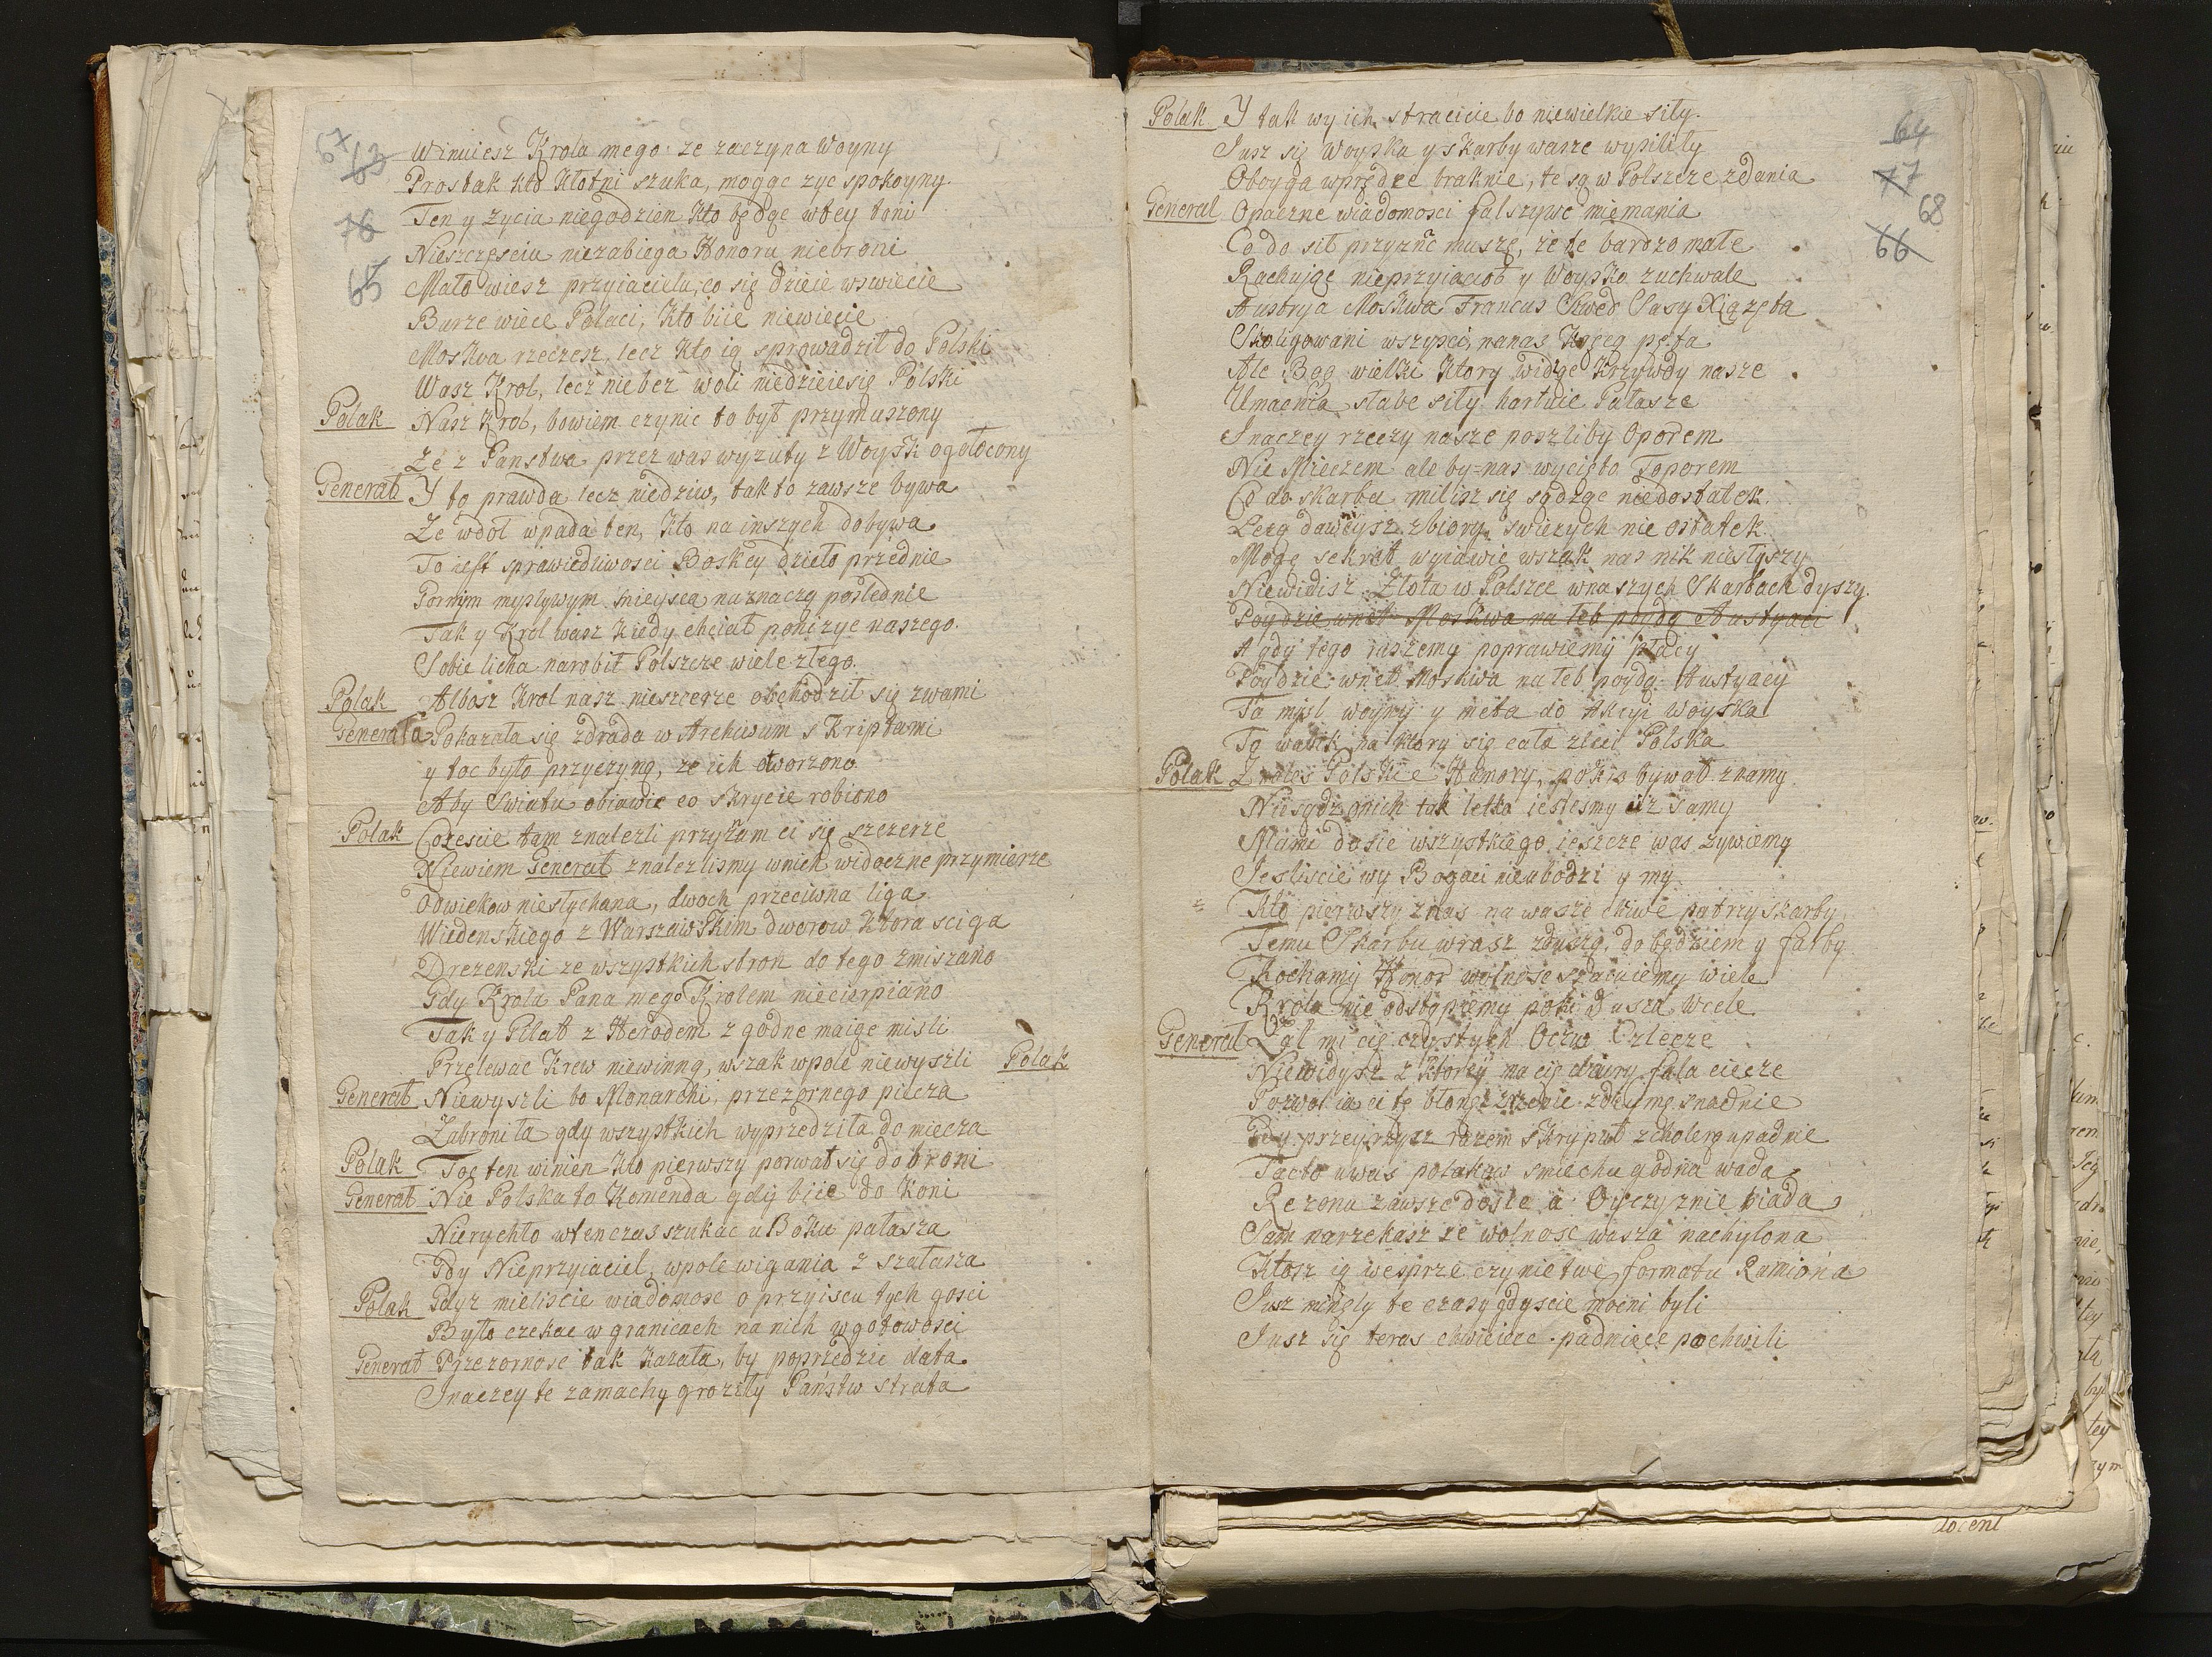 67
63
76
65
Winuiesz Krola mego ze zaczyna Woyny
Prostak kto Kłotni szuka, mogąc zyc spokoyny.
Ten y życia niegodzien Kto będąc w tey toni
Nieszczęsciu niezabiega Honoru niebroni
Mało wiesz przyiacielu, co się dzieie w swiecie
Burze wiecie Polaci, Kto biie niewiecie
Moskwa rzeczesz, lecz Kto ią sprowadził do Polski
Wasz Krol, lecz nie bez woli niedzieiesię Polski
Polak Nasz Krol, bowiem czynic to był przymuszony
Ze z Panstwa przez was wyzuty z Woysk ogołocony
Generał Y to prawda lecz niedziw, tak to zawsze bywa
Ze w doł wpada ten, Kto na inszych dobywa
To iest sprawiedliwosci Boskey dzieło przednie
Gornym myslywym mieysca naznaczą poslednie
Tak y Krol wasz kiedy chciał poniżyc naszego.
Sobie licha narobił Polszcze wiele złego.
Polak Albosz Krol nasz nieszczerze obchodził się zwami
Generał Pokazała się zdrada w Archiwum s Kriptami
y toc było przyczyną, ze ich otworzono
Aby Swiatu obiawic co skrycie robiono
Polak Cożescie tam znalezli przyznam ci się szczerze
Niewiem Generał znalezlismy wnich widoczne przymierze
Odwiekow niesłychana, dwoch przeciwna liga
Wiedenskiego z Warszawskim dworow Ktora sciga
Drezenski ze wszystkich stron do tego zmiszano
Gdy Krola Pana mego Krolem niecierpiano
Tak y Piłat z Herodem zgodne maiąc misli
Przelewac Krew niewinną, wszak wpole niewyszli Polak
Generał Niewyszli bo Monarchi, przezornego piecza
Zabroniła gdy wszystkich wyprzedziła do miecza
Polak Toc ten winien Kto pierwszy porwał się do broni
Generał Nie Polska to Komenda gdy biie do Koni
Nierychło wtenczas szukac u Boku pałasza
Gdy Nieprzyiaciel, wpole wigania z szałasza
Polak Gdyz mieliscie wiadomosc o przyisciu tych gosci
Było czekac w granicach na nich w gotowosci
Generał Przezornosc tak Kazała, by poprzedzic data
Inaczey te zamachy grozily Państw strata
64
77
68
66
Polak Y tak wy ich stracicie bo niewielkie siły.
Jusz się Woyska y skarby wasze wysiliły
Oboyga wprędce braknie, te są w Polszcze zdania
General Opaczne wiadomosci falszywe mięmania
Co do sił przyznc muszę, że te bardzo małe
Rachuięc nieprzyiacioł y Woysko zuchwałe
Austrya Moskwa Francus Szwed Sasy Xiążęta
Skoligowani wszysci, na nas Kręcą pęta
Ale Bog wielki Ktory widząc Krzywdy nasze
Umacnia słabe siły hartuie Pałasze
Inaczey rzeczy nasze poszliby Oporem
Nie Mieczem ale by=nas wycięto Toporem
Co do skarbu milisz się sądząc niedostatek.
Lezą dawnysz zbiory, swiezych nie ostatek.
Mogę sekret wyiawic wszak nas nik niesłyszy
Niewidisz Złota w Polszce wnaszych Skarbach dyszy.
Poydzie wnet Moskwa na łeb poydą Austyaci
A gdy tego raszemy poprawiemy płacy
Poydzie wnet Moskwa na łeb poydą Austyacy
Ta mysl woyny y meta do Akcyi Woyska
To wabik na Ktory się cała zleci Polska
Polak Znałes Polskie Humory, pokis bywał znamy
Niesądz onich tak letko iestesmy iz samy
Mami dosic wszystkiego ieszcze was zywiemy
Iesliscie wy Bogaci nieubodzi y my
Kto pierwszy znas na wasze chiwe patrzy skarby
Temu Skarbu wrasz zduszą, dobędziem y farby
Kochamy Honor wolnosc szacuiemy wiele
Krola nie odstąpiemy poki Dusza w ciele
General Żal mi cię czystych Oczu Człecze
Niewidysz z Ktorey ma cię chmury fala ciecze
Pozwol ia ci tę błonę zrzenic zdeymę snadnie
Gdy przeyrzysz razem skrypuł z cholerą upadnie
Tacto uwas polakow smiechu godna wada
Rezonu zawsze dosic a Oyczyznie biada
Sam narzekasz ze wolnosc wasza nachylona
Ktosz ią wesprze czy nie twe formatu Ramiona
Jusz minęly te czasy gdyscie mocni byli
Jusz się teras chwieiece padniece po chwili
docent